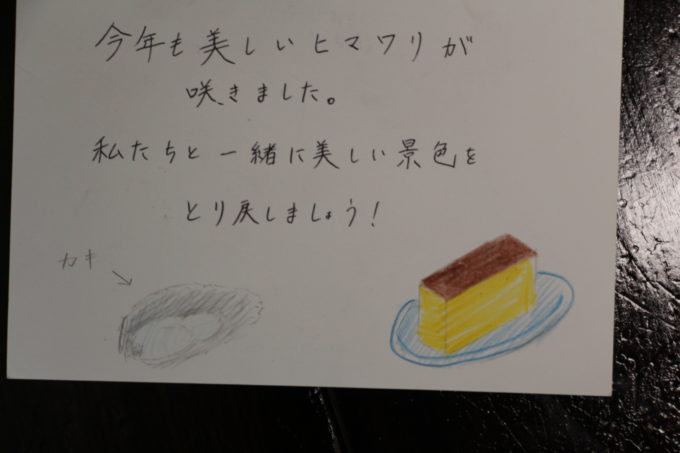 今年も美しいヒマワリが
咲きました。
私たちと一緒に美しい景色を
とり戻しましょう!
カキ